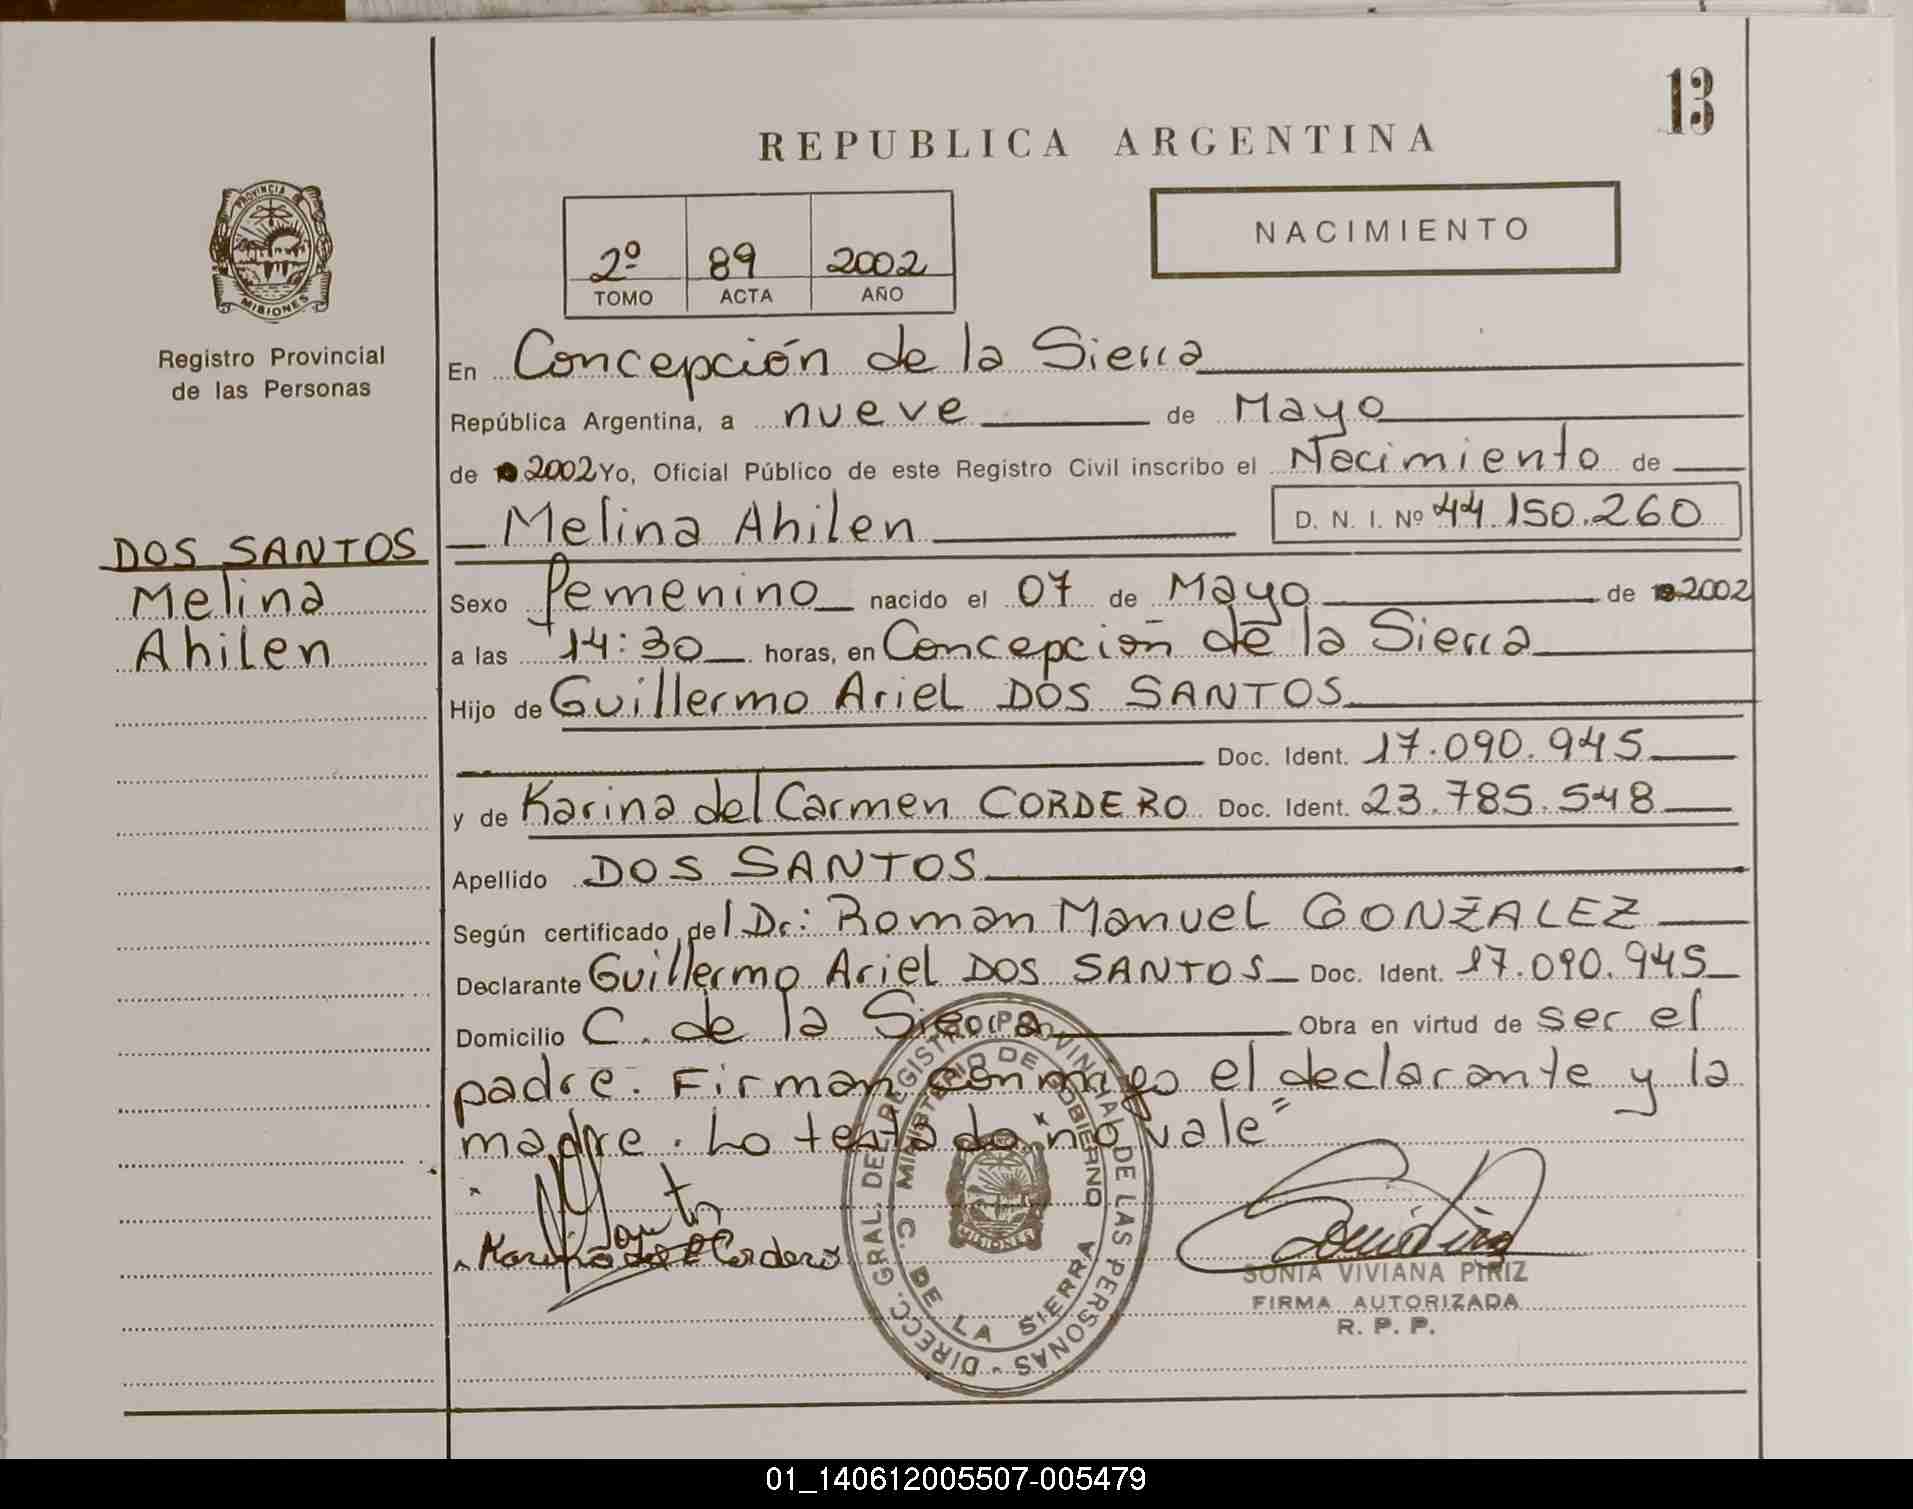 13
REPUBLICA ARGENTINA
PROVINCIA DE
MISIONES
Registro Provincial
de las Personas
2º 89 2002
TOMO ACTA AÑO
NACIMIENTO
En Concepción de la Sierra
República Argentina, a nueve de Mayo
de 2002 Yo, Oficial Público de este Registro Civil inscribo el Nacimiento de
Melina Ahilen D. N. I. Nº 44.150.260
DOS SANTOS
Melina
Ahilen
Sexo Femenino nacido el 07 de Mayo de 2002
a las 14:30 horas, en Concepción de la Sierra
Hijo de Guillermo Ariel DOS SANTOS
Doc. Ident. 17.090.945
y de Karina del Carmen CORDERO Doc. Ident. 23.785.548
Apellido DOS SANTOS
Según certificado del Dr: Roman Manuel GONZALEZ
Declarante Guillermo Ariel DOS SANTOS Doc. Ident. 17.090.945
Domicilio C. de la Sierra Obra en virtud de ser el
padre. Firman conmigo el declarante y la
madre. Lo testado "no vale"
Karina del C Cordero
DIRECC. GRAL. DEL REGISTRO PROVINCIAL DE LAS PERSONAS
MINISTERIO DE GOBIERNO
MISIONES
C. DE LA SIERRA
SONIA VIVIANA PIRIZ
FIRMA AUTORIZADA
R. P. P.
01_140612005507-005479